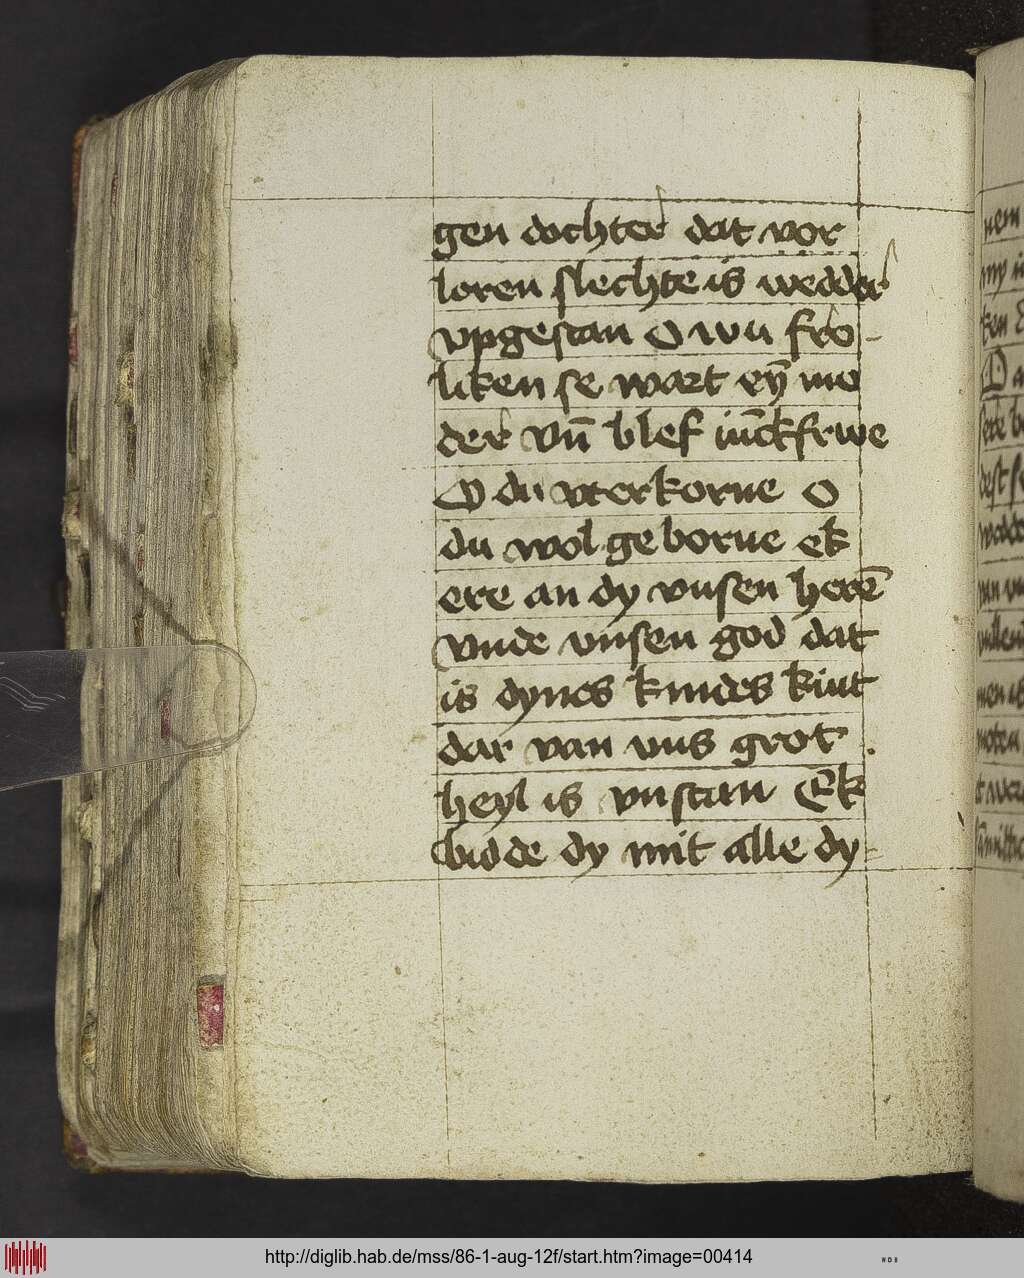 gen dochter dat vor
loren slechte is wedder
vpgestan O wu fro-
liken se wart eȳ mo
der vn̄ blef iūckfrwe
O du vterkorne o
du wol geborne ek
ere an dy vnsen herē
vnde vnsen god dat
is dynes kindes kint
dar van vns grot
heyl is vnstan Ek
bidde dy mit alle dy=
nem
my
ken
http://diglib.hab.de/mss/86-1-aug-12f/start.htm?image=00414